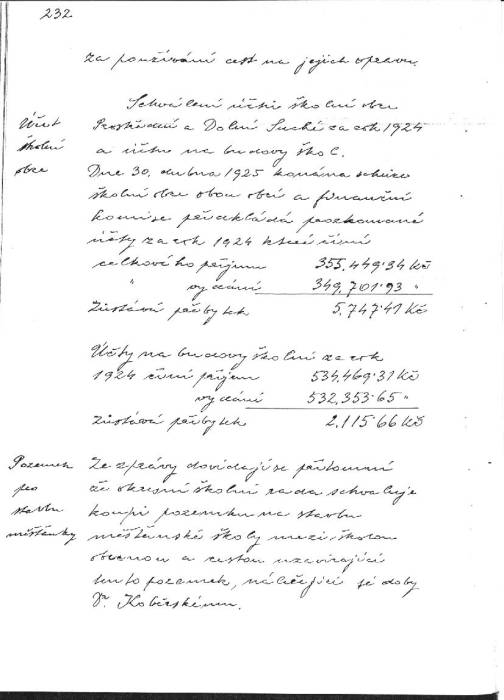 232
za používání cest na jejich opravu.
Schválení účtů školní obce
Účet
školní
obce
Prostřední a Dolní Suché za rok 1924
a účtu na budovy škol.
Dne 30. dubna 1925 konána schůze
školní obce obou obcí a finanční
komise předkládá přezkoumané
účty za rok 1924 které činí
celkového příjmu 355,449·34 Kč
" vydání 349,701·93 "
Zůstává přebytek 5.747·41 Kč
Účty na budovy školní za rok
1924 činí příjem 534,469·31 Kč
vydání 532,353·65 "
Zůstává přebytek 2.115·66 Kč
Pozemek
pro
stavbu
měšťanky
Ze zprávy dovídají se přítomní
že okresní školní rada schvaluje
koupi pozemku na stavbu
měšťanské školy mezi školou
obecnou a cestou uzavírající
tento pozemek, náležející té doby
Dr. Koběrskému.